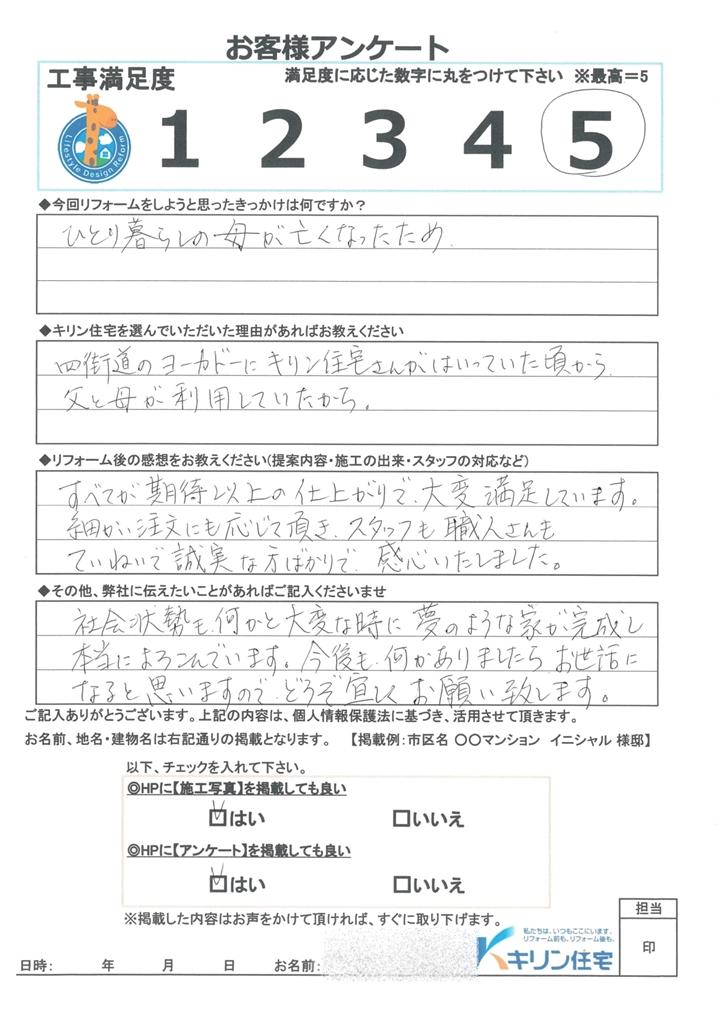 お客様アンケート
工事満足度
満足度に応じた数字に丸をつけて下さい ※最高=5
1 2 3 4 5
Lifestyle Design Reform
◆今回リフォームをしようと思ったきっかけは何ですか?
ひとり暮らしの母が亡くなったため.
◆キリン住宅を選んでいただいた理由があればお教えください
四街道のヨーカドーにキリン住宅さんがはいっていた頃から.
父と母が利用していたから。
◆リフォーム後の感想をお教えください(提案内容・施工の出来・スタッフの対応など)
すべてが期待以上の仕上がりで、大変満足しています。
細かい注文にも応じて頂き、スタッフも職人さんも
ていねいで誠実な方ばかりで、感心いたしました。
◆その他、弊社に伝えたいことがあればご記入くださいませ
社会状勢も、何かと大変な時に夢のような家が完成し
本当によろこんでいます。今後も、何かありましたらお世話に
なると思いますので、どうぞ宜しくお願い致します。
ご記入ありがとうございます。上記の内容は、個人情報保護法に基づき、活用させて頂きます。
お名前、地名・建物名は右記通りの掲載となります。 【掲載例:市区名 〇〇マンション イニシャル 様邸】
以下、チェックを入れて下さい。
◎HPに【施工写真】を掲載しても良い
☑はい □いいえ
◎HPに【アンケート】を掲載しても良い
☑はい □いいえ
※掲載した内容はお声をかけて頂ければ、すぐに取り下げます。
担当
印
私たちは、いつもここにいます。
リフォーム前も、リフォーム後も。
キリン住宅
日時: 年 月 日 お名前: